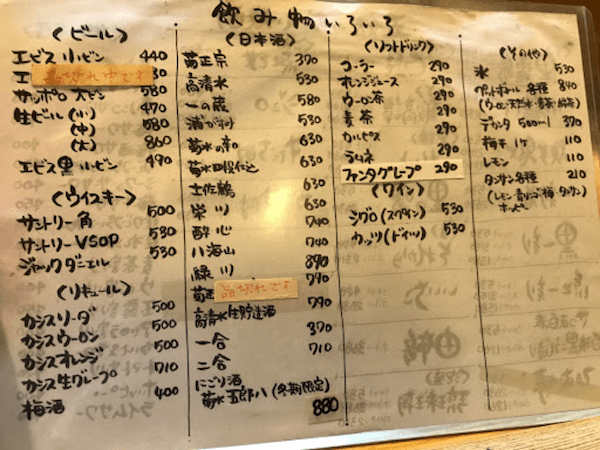 飲み物いろいろ
(ビール)
エビス 小ビン 440
エ 品切れ中です 30
サッポロ 大ビン 580
生ビール (小) 470
(中) 580
(大) 860
エビス黒 小ビン 490
(ウイスキー)
サントリー角 500
サントリーVSOP 530
ジャックダニエル 530
(リキュール)
カシスソーダ 500
カシスウーロン 500
カシスオレンジ 500
カシス生グレープ 710
梅酒 400
(日本酒)
菊正宗 370
高清水 530
一の蔵 580
浦が利 530
菊水の辛口 630
菊水四段仕込 630
土佐鶴 630
栄川 630
酔心 740
八海山 740
緑川 890
菊 品切れです 790
高清水 生貯蔵酒 790
一合 370
二合 710
にごり酒
菊水 五郎八 (冬期限定) 880
(ソフトドリンク)
コーラ 290
オレンジジュース 290
ウーロン茶 290
青茶 290
カルピス 290
ラムネ 290
ファンタグレープ 290
(ワイン)
シグロ (スペイン) 530
カッツ (ドイツ) 530
(その他)
氷 530
ペットボトル 各種 840
(ウーロン・天然水・青茶・緑茶)
デカンタ 500ml 370
梅干 1ケ 110
レモン 110
タンサン 各種 210
(レモン・青りんご・梅・タンサン)
ホッピー